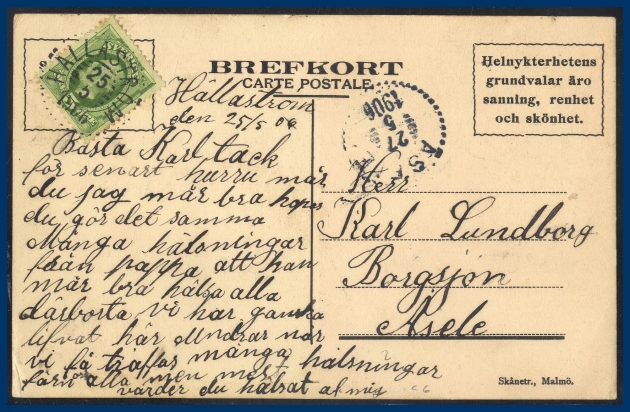 BREFKORT
CARTE POSTALE.
Helnykterhetens
grundvalar äro
sanning, renhet
och skönhet.
HÄLLASTRÖM
25
5
1906
27
5
ÅSELE
Hällaström
den 25/5 06
Bästa Karl tack
för senast hurru mår
du jag mår bra hopas
du gör det samma
Många hälsningar
från pappa att han
mår bra hälsa alla
därborta vi har ganska
lifvat här undrar när
vi få träffas många hälsningar
från alla men mest
värder du hälsat af mig
Herr
Karl Lundborg
Borgsjön
Åsele
Skånetr., Malmö.